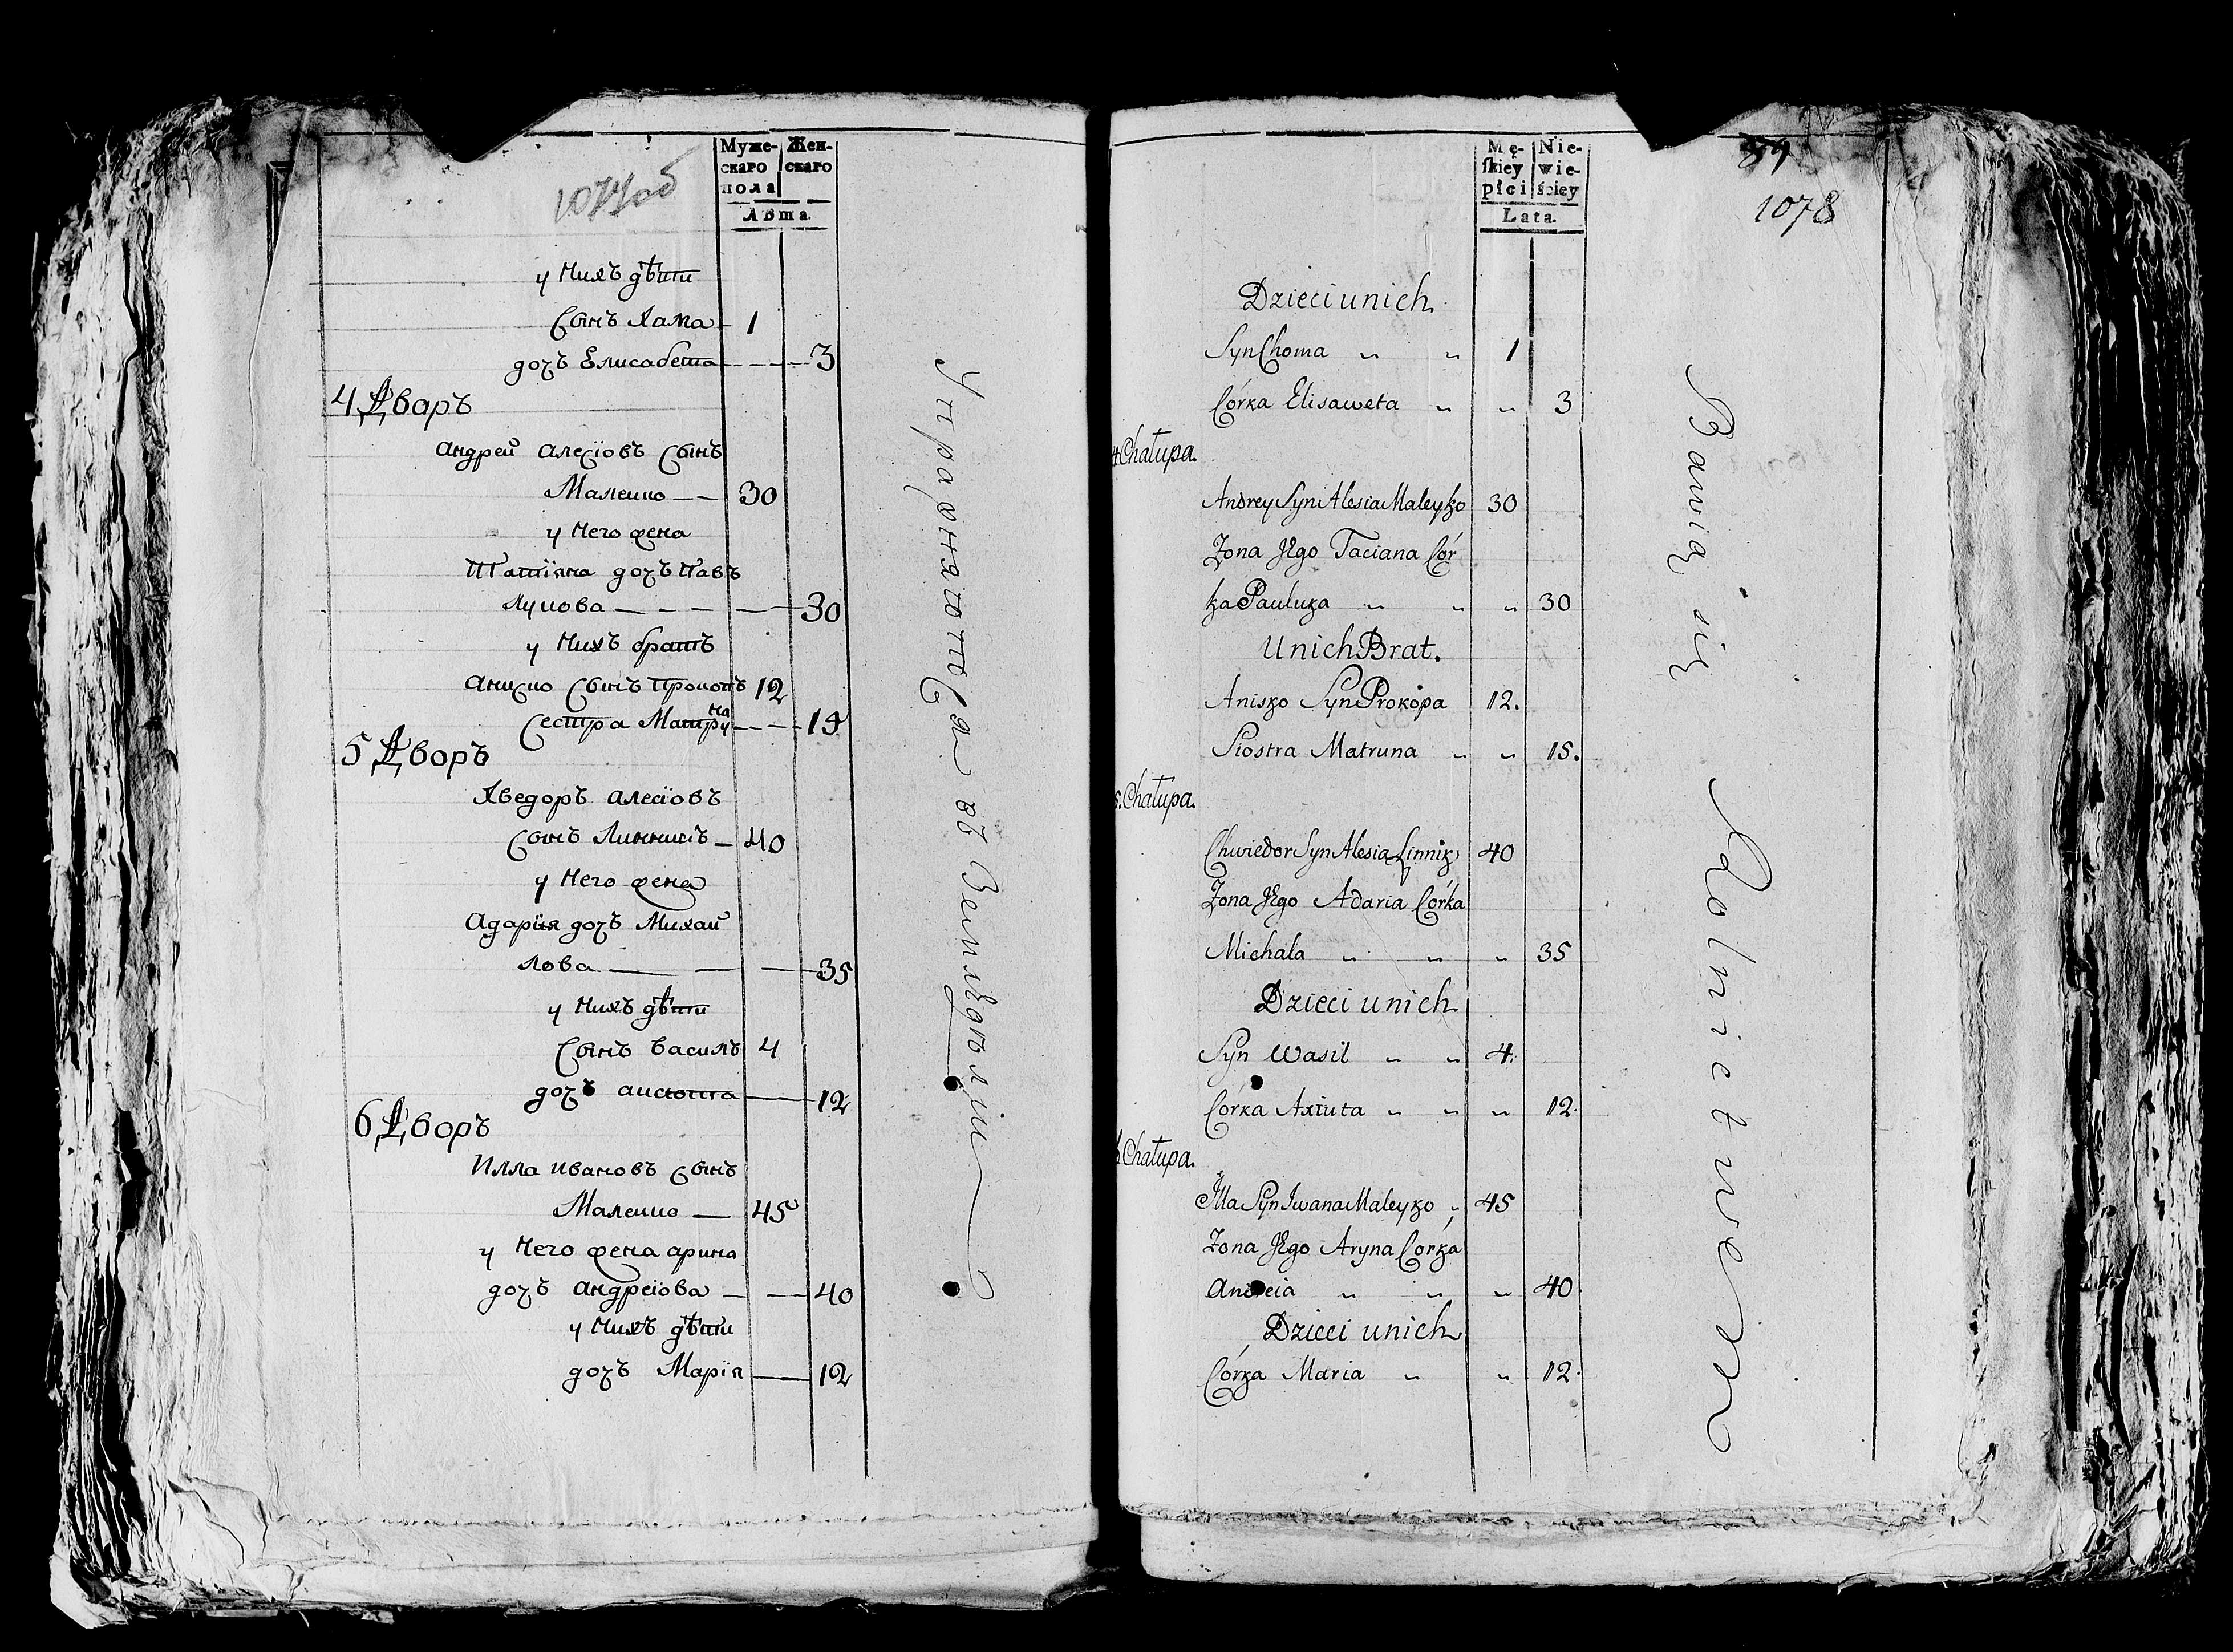 Муже-
скаго
пола
Жен-
скаго
Лѣта.
у нихъ дѣти
сынъ Хама 1
дочъ Елисабета 3
4 Дворъ
Андрей Алесіовъ сынъ
Малейко 30
у него жена
Татіяна дочъ Пав
лукова 30
у нихъ братъ
Аниско сынъ Прокопъ 12
сестра Матруна 15
5 Дворъ
Хведоръ Алесіовъ
сынъ Линникъ 40
у него жена
Адарія дочъ Михай
лова 35
у нихъ дѣти
сынъ Василъ 4
дочъ Аксюта 12
6 Дворъ
Илла Ивановъ сынъ
Малейко 45
у него жена Арина
дочъ Андреіова 40
у нихъ дѣти
дочъ Марія 12
Упражняются въ Земледѣліи
Mę-
skiey
płci
Nie-
wie-
ściey
Lata.
89
1078
Dzieci unich
Syn Choma " " 1
Córka Elisaweta " " 3
4 Chałupa.
Andrey Syn Alesia Maleyko 30
Zona Jego Taciana Cór
ka Pauluka " " " 30
Unich Brat.
Anisko Syn Prokopa 12.
Siostra Matruna " " 15.
5. Chałupa.
Chwiedor Syn Alesia Linnik 40
Zona Jego Adaria Córka
Michała " " " 35
Dzieci unich
Syn Wasil " " 4.
Córka Axiuta " " " 12.
6 Chałupa.
Jlla Syn Jwana Maleyko " 45
Zona Jego Aryna Córka
Andreia " " " 40.
Dzieci unich
Córka Maria " " 12.
Bawią się Rolnictwem